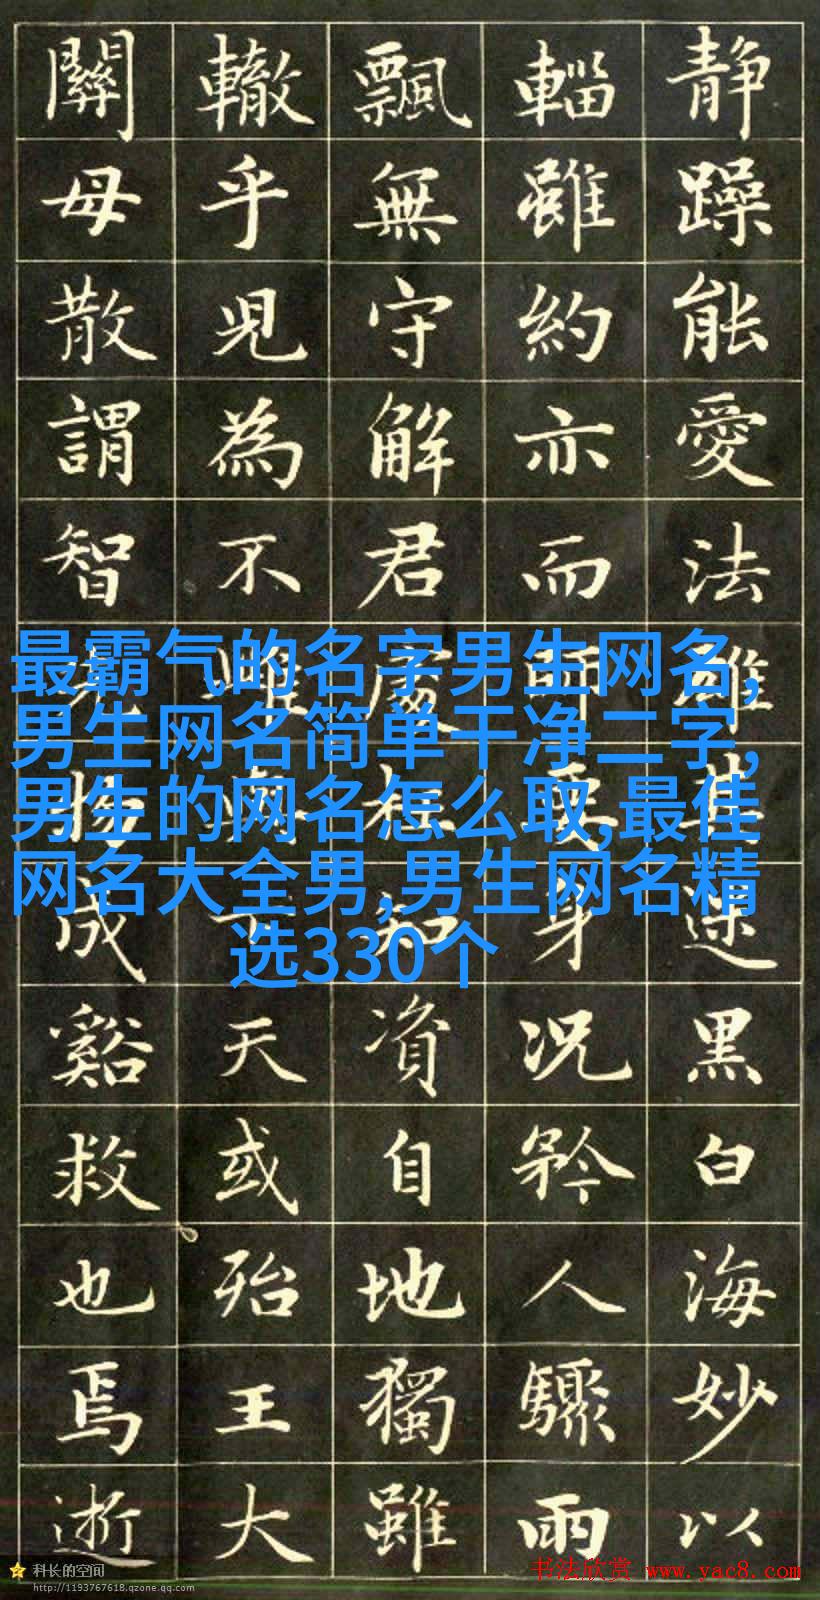 静躁能愛法雖速黑白海妙以
輜雖約亦而要身况矜人驟雨
飄無守解君處知資自地獨雖
轍乎見為不雖天或殆王大
關毋散謂智物成谿救也焉逝
最霸气的名字男生网名,
男生网名简单干净二字,
男生的网名怎么取,最佳
网名大全男,男生网名精
选330个
科长的空间
http://1193767618.qzone.qq.com
书法欣赏 www.yac8.com